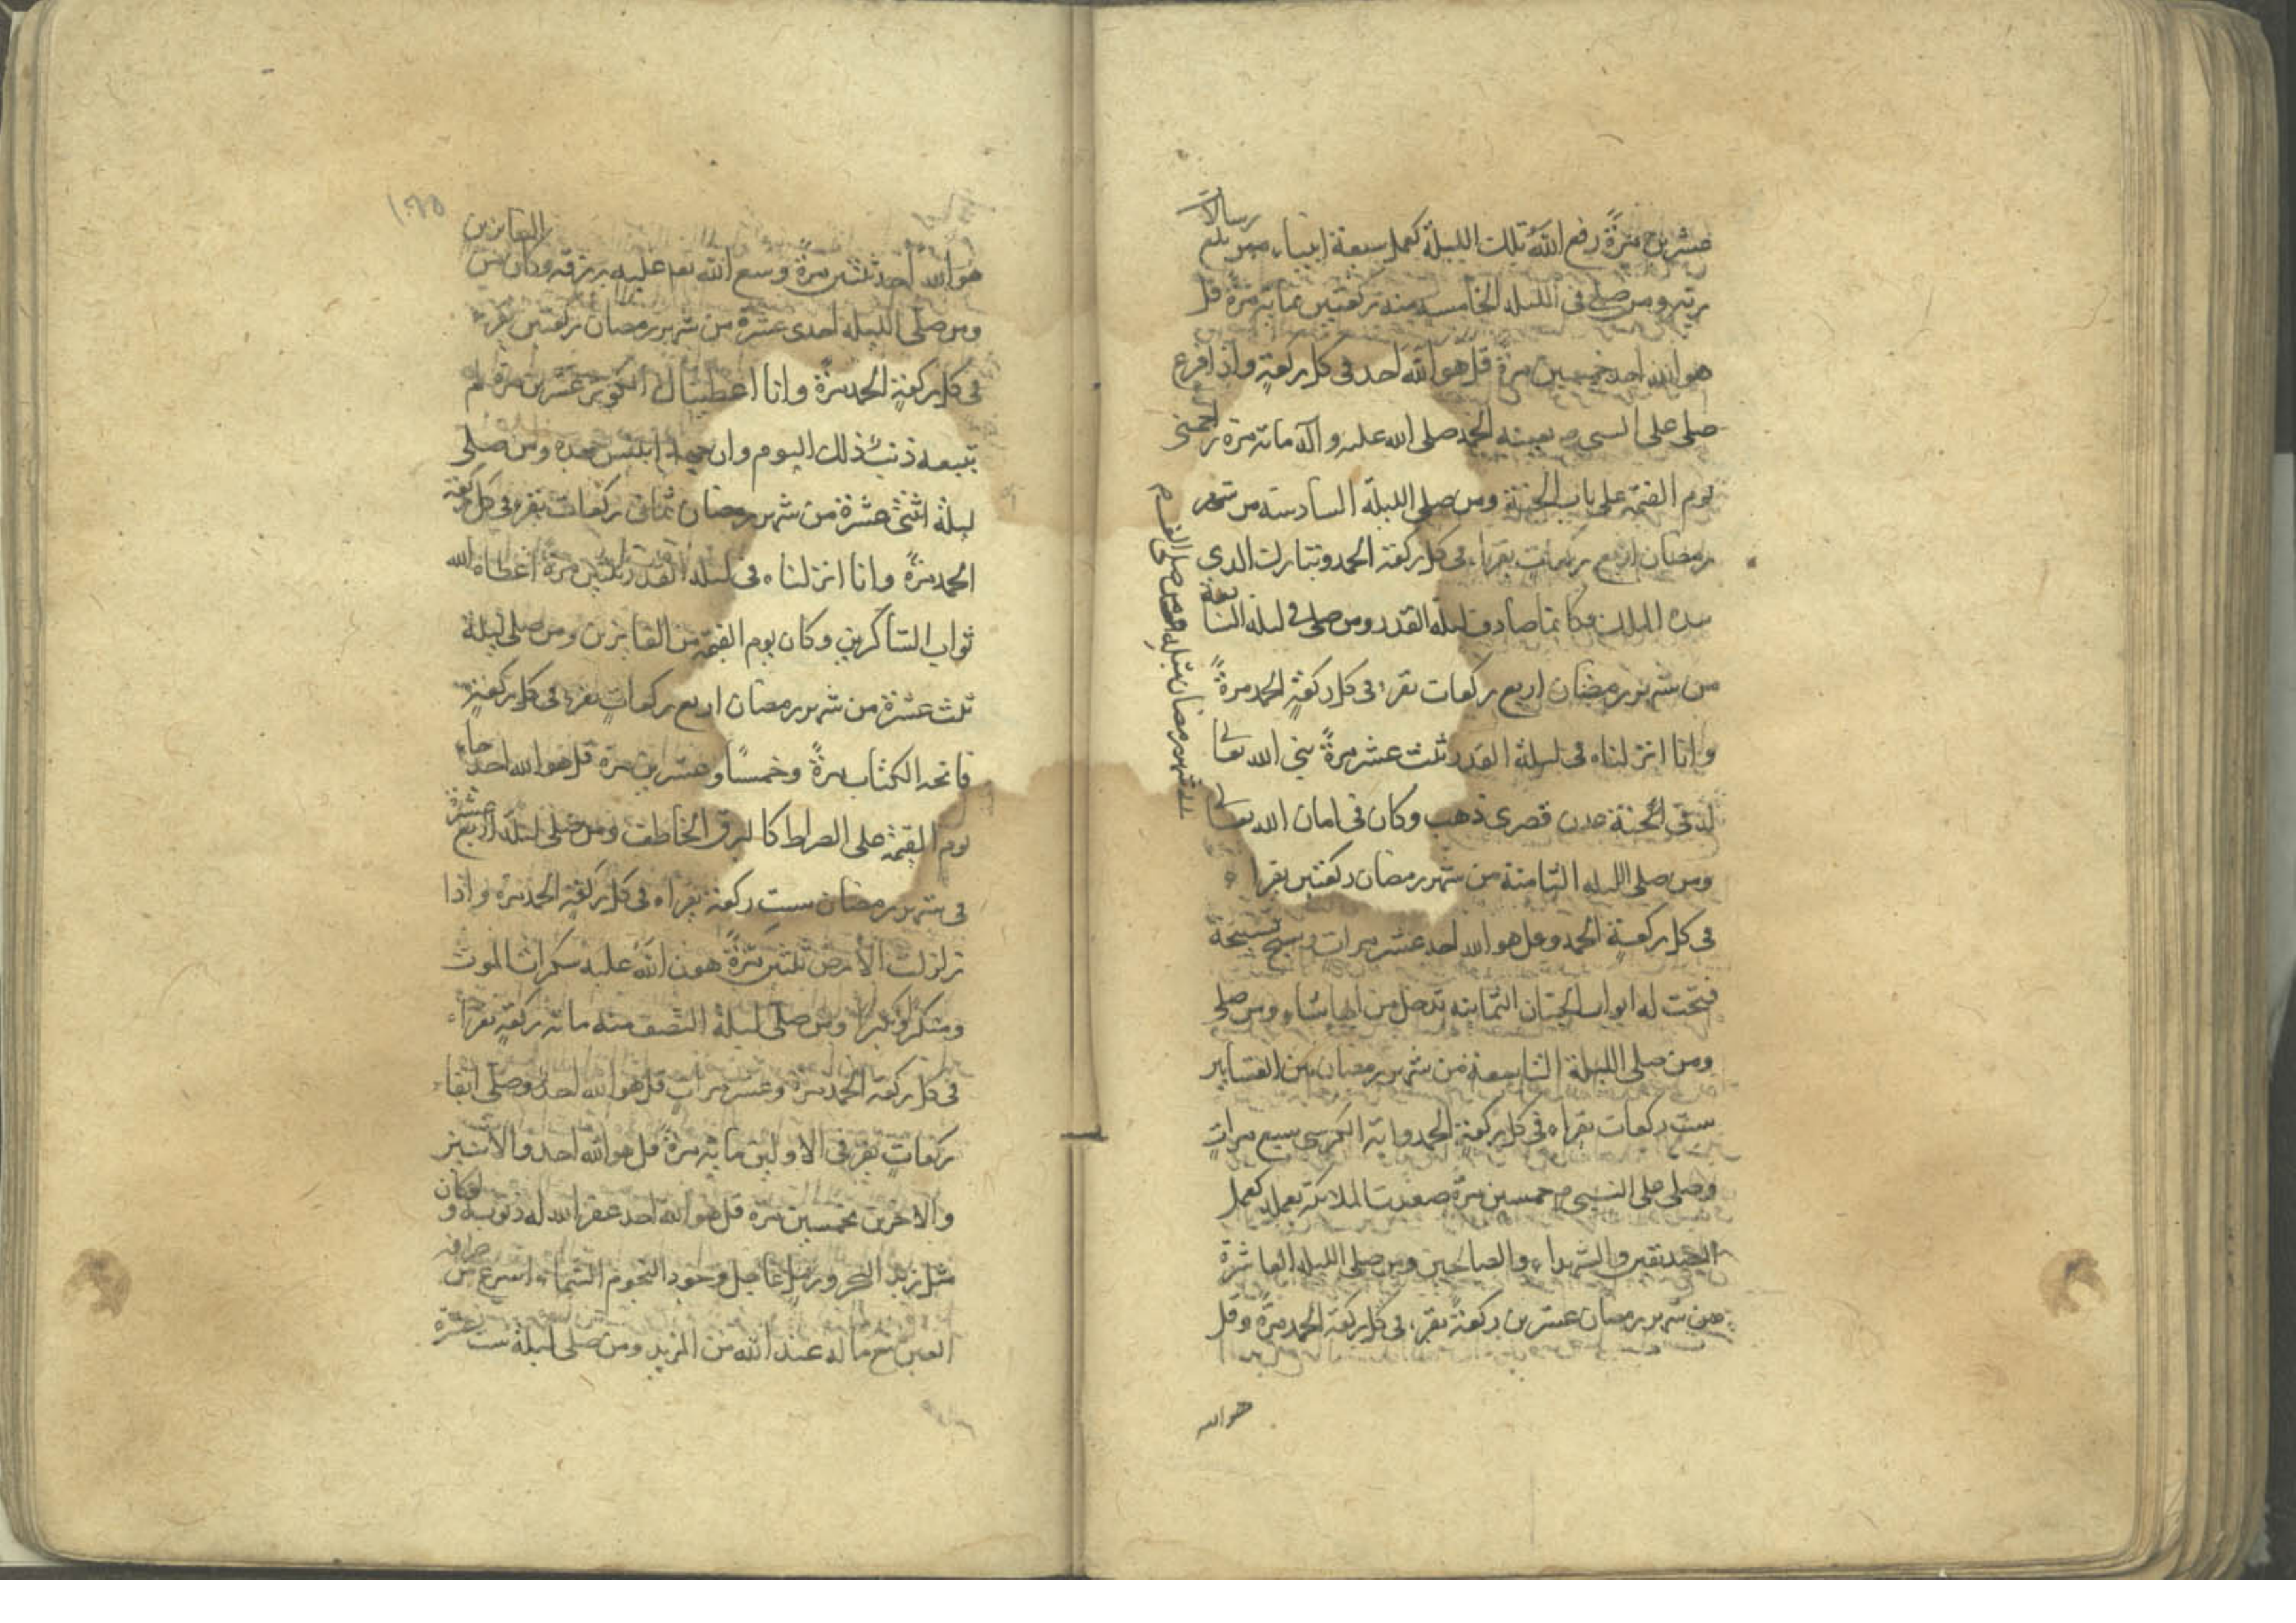 عشرين مرةً رفع الله تلك الليلة كعمل سبعة انبياء ممن بلغ
رسالات
ربّه ومن صلى فى الليلة الخامسه منه ركعتين بمائة مرة قل
هو الله احد خمسين مرة قل هو الله احد فى كل ركعةٍ واذا فرغ
صلى على النبى صلى الله عليه وآله مائة مرة زاحمنى
يوم القيمة على باب الجنة ومن صلى الليلة السادسة من شهر
رمضان اربع ركعات يقراء فى كل ركعة الحمد وتبارك الذى
بيده الملك فكانما صادف ليلة القدر ومن صلى فى ليلة السابعة
من شهر رمضان اربع ركعات يقراء فى كل ركعةٍ الحمد مرةً
وانا انزلناه فى ليلة القدر ثلث عشر مرةً بنى الله تعالى
له فى الجنة عدن قصرى ذهب وكان فى امان الله تعالى
الى شهر رمضان مثله
ومن صلى الليله الثامنة من شهر رمضان ركعتين يقرا
فى كل ركعةٍ الحمد وقل هو الله احد عشر مرات وسبح تسبيحة
فتحت له ابواب الجنان الثمانيه يدخل من ايها شاء ومن صلى
ومن صلى الليلة التاسعة من شهر رمضان بين العشاين
ست ركعات يقراء فى كل ركعةٍ الحمد واية الكرسى سبع مراتٍ
وصلى على النبى ص خمسين مرةً صعدت الملائكة بعمله كعمل
الصديقين والشهداء والصالحين ومن صلى الليله العاشرة
من شهر رمضان عشرين ركعةً يقراء فى كل ركعة الحمد مرةً وقل
هو الله
هو الله احد ثلثين مرةً وسع الله تعم عليه رزقه وكان من
الفائزين
ومن صلى الليلة احدى عشرة من شهر رمضان ركعتين يقرء
فى كل ركعةٍ الحمد مرةً وانا اعطيناك الكوثر عشرين مرة لم
يتبعه ذنب ذلك اليوم وان جهد ابليس جهده ومن صلى
ليلة اثنتى عشرة من شهر رمضان ثمانى ركعات يقرء فى كل ركعة
الحمد مرةً وانا انزلناه فى ليلة القدر ثلثين مرةً اعطاه الله
ثواب الشاكرين وكان يوم القيمة من الفايزين ومن صلى ليلة
ثلث عشرة من شهر رمضان اربع ركعاتٍ يقرء فى كل ركعةٍ
فاتحه الكتاب مرةً وخمسًا وعشرين مرة قل هو الله احد جاء
يوم القيمة على الصراط كالبرق الخاطف ومن صلى ليلة اربع عشرة
فى شهر رمضان ست ركعة يقراء فى كل ركعةٍ الحمد مرة واذا
زلزلت الارض ثلثين مرةً هون الله عليه سكرات الموت
ومنكرًا ونكيرًا ومن صلى ليلة النصف منه مائة ركعةٍ يقراء
فى كل ركعة الحمد مرة وعشر مراتٍ قل هو الله احد وصلى ايضا
ركعاتٍ يقرء فى الاولين مائة مرةً قل هو الله احد والاثنين
والاخرين بخمسين مرة قل هو الله احد غفر الله له ذنوبه ولو كان
مثل زبد البحر ورمل عالج وعدد النجوم السماء اسرع من طرفه
العين مع ما له عند الله من المزيد ومن صلى ليلة ست عشرة